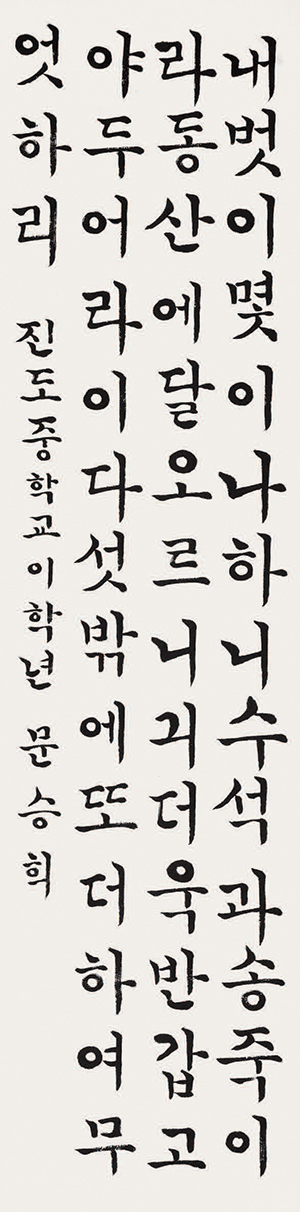 내벗이몇이나하니수석과송죽이
라동산에달오르니긔더욱반갑고
야두어라이다섯밖에또더하여무
엇하리 진도중학교이학년 문승희